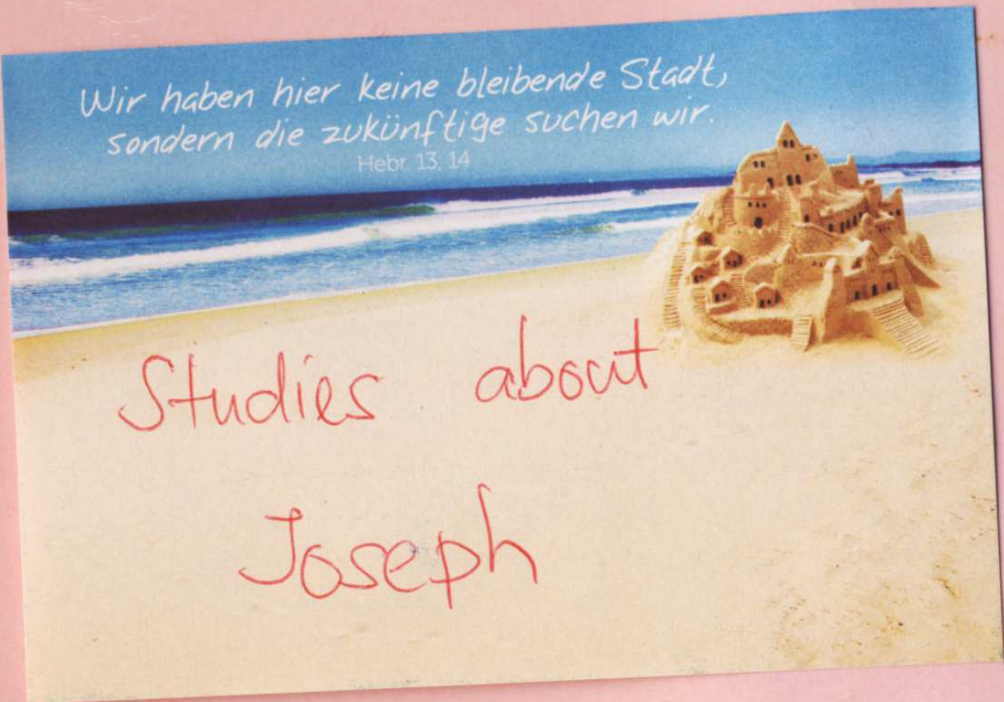 Wir haben hier keine bleibende Stadt,
sondern die zukünftige suchen wir.
Hebr. 13, 14
Studies about
Joseph